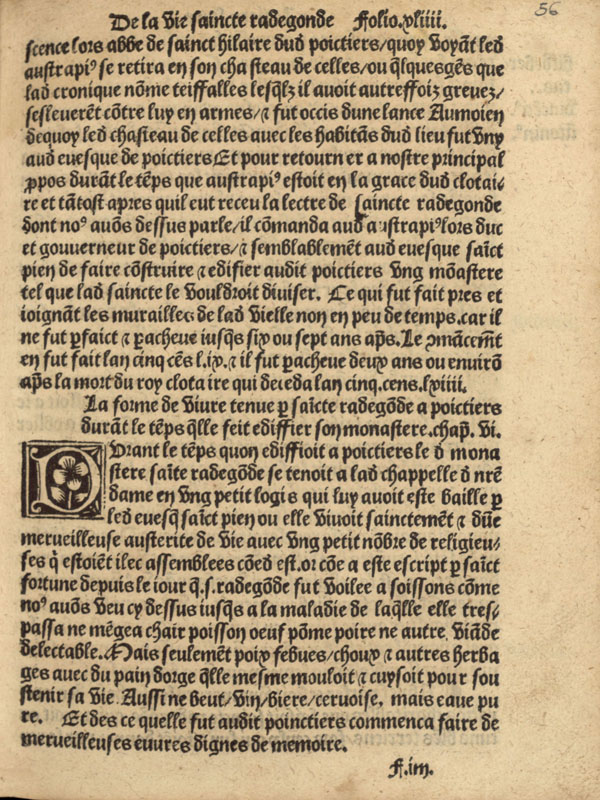 56
De la vie saincte radegonde Folio.xliiii.
scence lors abbe de sainct hilaire dud poictiers/quoy voyāt led
austrapiꝰ se retira en son chasteau de celles/ou q̄lques gēs que
lad cronique nōme teiffalles lesq̄lz il avoit autreffoiz grevez/
seslevverēt cōtre luy en armes/⁊ fut occis dune lance Aumoien
dequoy led chasteau de celles avec les habitās dud lieu fut vny
aud evesque de poictiers Et pour retourner a nostre principal
ꝓpos durāt le tēps que austrapiꝰ estoit en la grace dud clotai/
re et tātost apres quil eut receu la lectre de saincte radegonde
dont noꝰ avōs dessus parle/il cōmanda aud austrapiꝰ lors duc
et gouverneur de poictiers/⁊ semblablemēt aud evesque saīct
pien de faire cōstruire ⁊ edifier audit poictiers vng mōastere
tel que lad saincte le vouldroit diviser. Ce qui fut fait pres et
ioignāt les murailles de lad vielle non en peu de temps.car il
ne fut ꝑfaict ⁊ ꝑacheve iusq̄s six ou sept ans ap̄s. Le ꝯmācemēt
en fut fait lan cinq cēs l.ix.⁊ il fut ꝑacheve deux ans ou envirō
ap̄s la mort du roy clotaire qui deceda lan cinq.cens.lxiiii.
La forme de vivre tenue ꝑ saīcte radegōde a poictiers
durāt le tēps q̄lle feit ediffier son monastere.chap̄. vi.
DVrant le tēps quon ediffioit a poictiers le d mona
stere saīte radegōde se tenoit a lad chappelle d nrē
dame en vng petit logis qui luy avoit este baille ꝑ
led evesq̄ saīct pien ou elle vivoit sainctemēt ⁊ dūe
merveilleuse austerite de vie avec vng petit nōbre de religieu/
ses q̄ estoiēt ilec assemblees cōed est.or cōe a este escript ꝑ saīct
fortune depuis le iour q̄.s.radegōde fut voilee a soissons cōme
noꝰ avōs veu cy dessus iusq̄s a la maladie de laq̄lle elle tres/
passa ne mēgea chair poisson oeuf pōme poire ne autre viāde
delectable. Mais seulemēt poix febues/choux ⁊ autres herba
ges avec du pain dorge q̄lle mesme mouloit ⁊ cuysoit pour sou
stenir sa vie Aussi ne beut/vin/biere/cervoise, mais eaue pu
re. Et des ce quelle fut audit poinctiers commenca faire de
merveilleuses euvres dignes de memoire.
F.iiij.